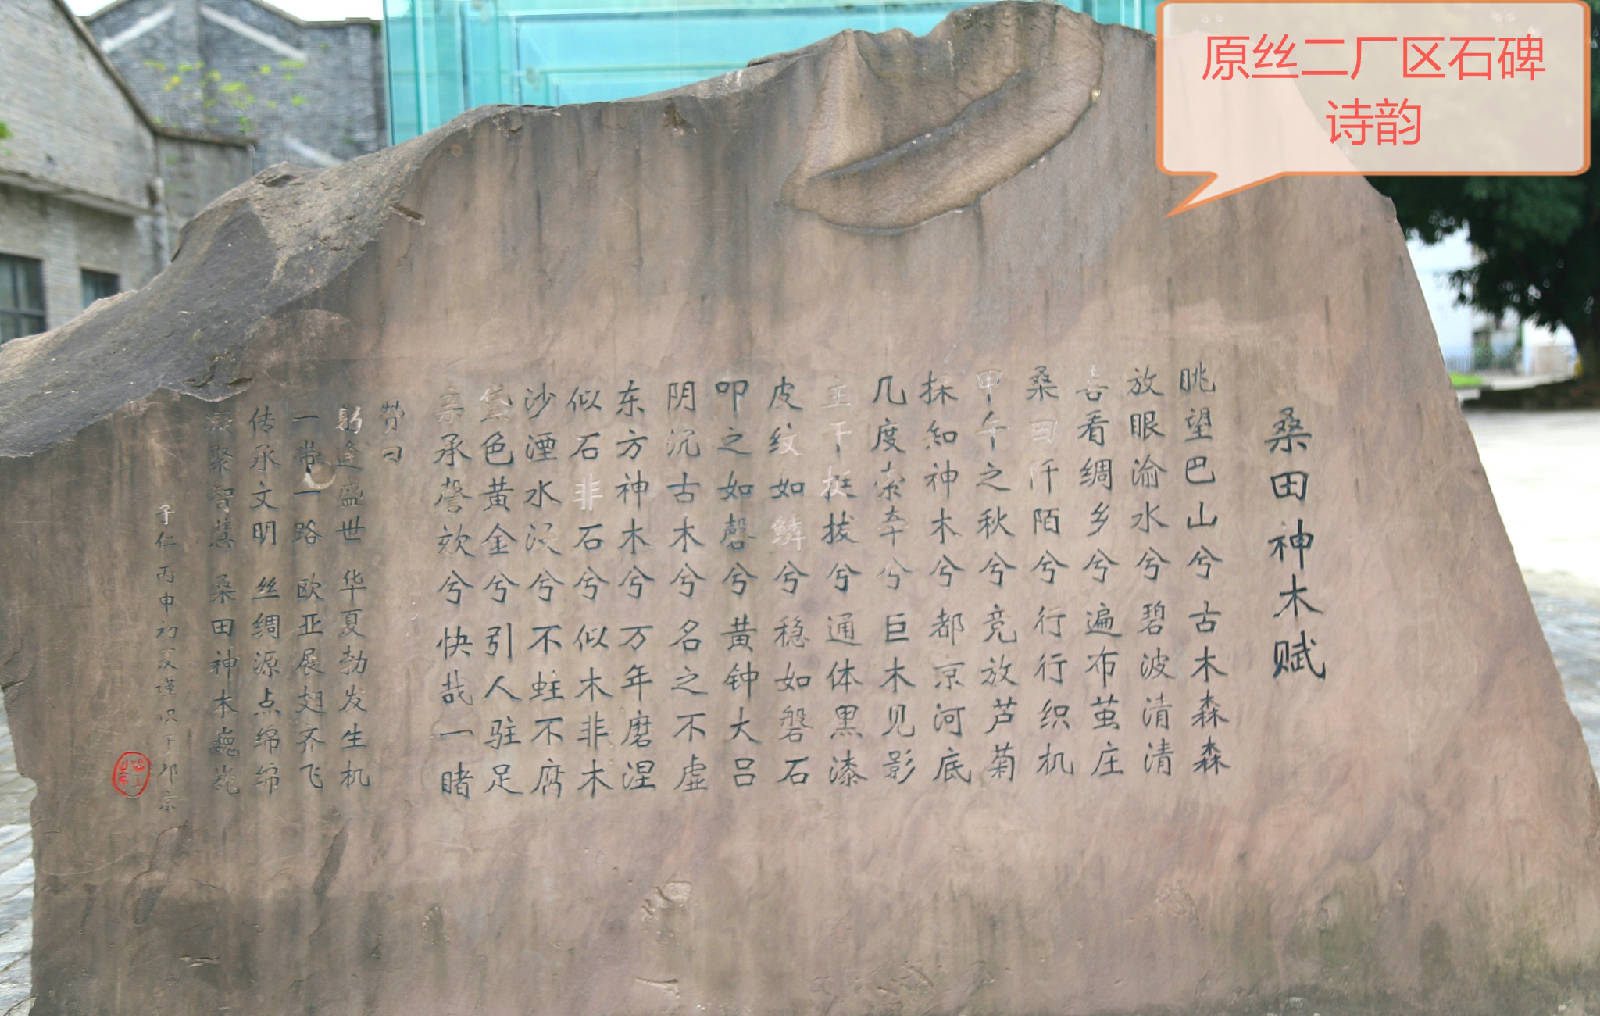 原丝二厂区石碑
诗韵
桑田神木赋
眺望巴山兮古木森森
放眼渝水兮碧波清清
喜看绸乡兮遍布茧庄
桑田仟陌兮行行织机
甲午之秋兮竞放芦菊
探知神木兮都京河底
几度索牵兮巨木见影
主干挺拔兮通体黑漆
皮纹如鳞兮稳如磐石
叩之如磬兮黄钟大吕
阴沉古木兮名之不虚
东方神木兮万年磨涅
似石非石兮似木非木
沙湮水浸兮不蛀不腐
黛色黄金兮引人驻足
亲承謦欬兮快哉一睹
赞曰
躬逢盛世 华夏勃发生机
一带一路 欧亚展翅齐飞
传承文明 丝绸源点绵绵
聚智慧 桑田神木巍巍
子仁丙申初夏谨识于都京